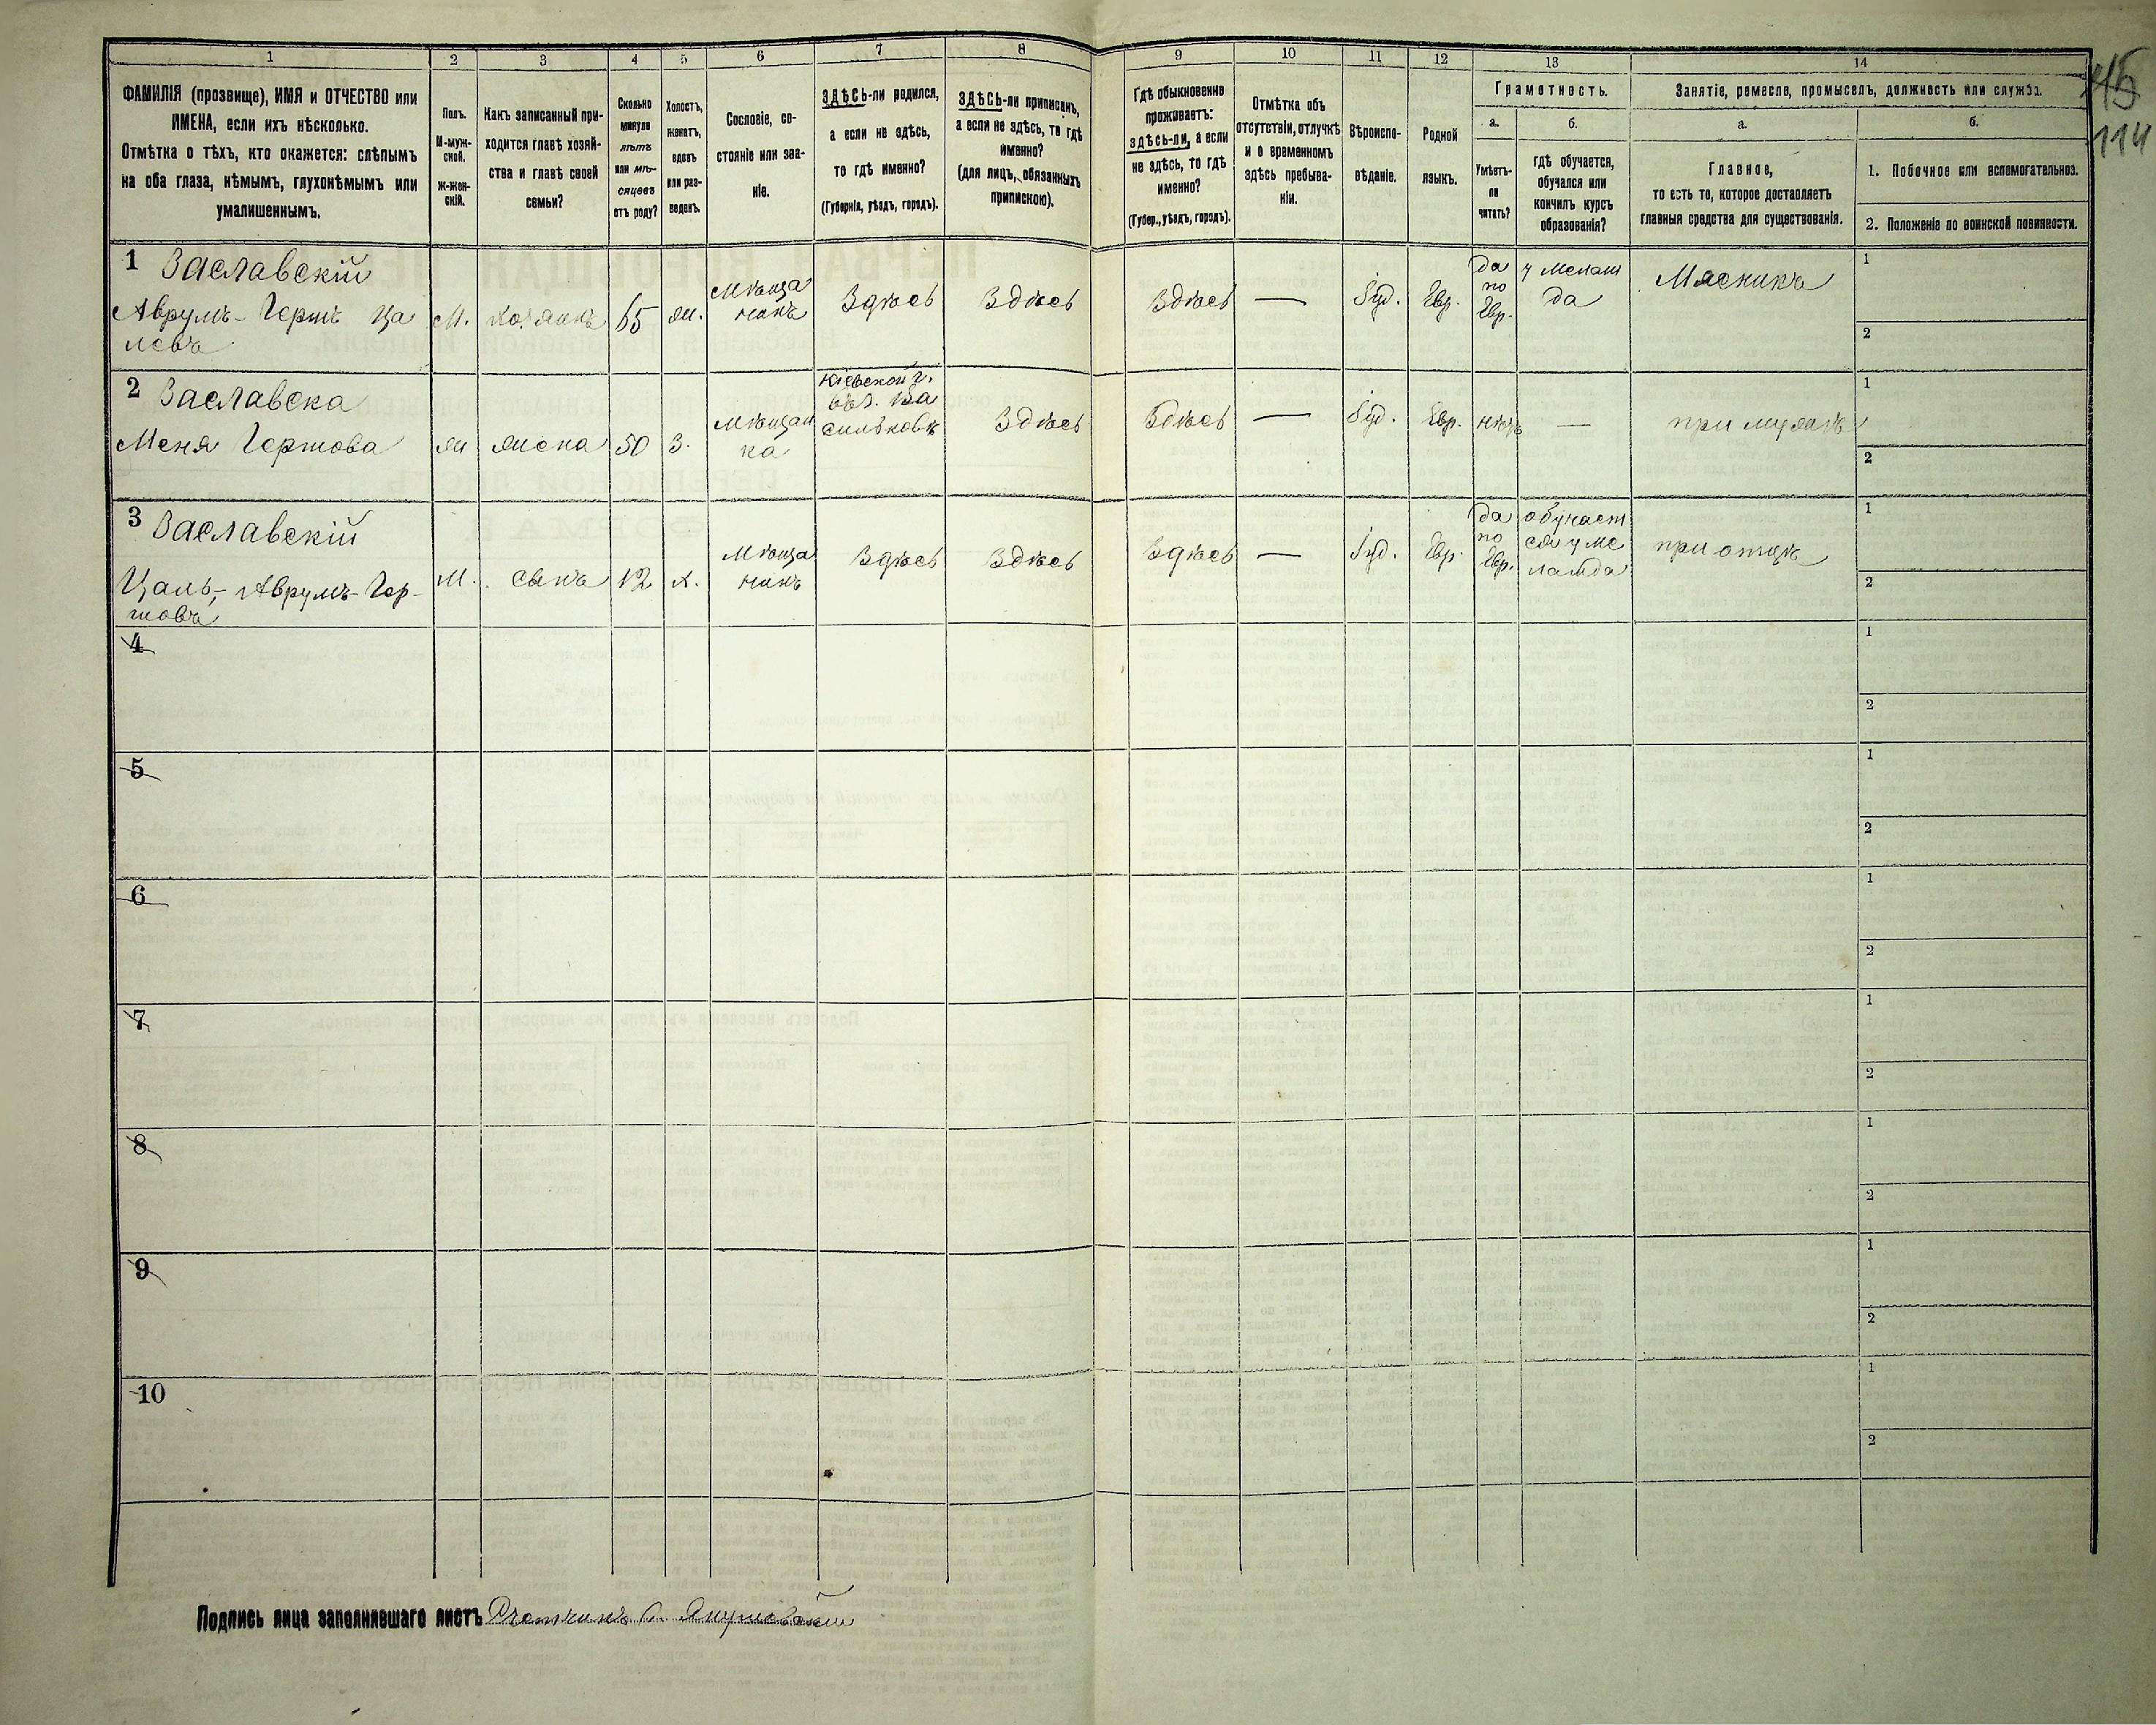 1 2 3 4 5 6 7 8 9 10 11 12 13 14
ФАМИЛІЯ (прозвище), ИМЯ и ОТЧЕСТВО или
ИМЕНА, если ихъ нѣсколько.
Отмѣтка о тѣхъ, кто окажется: слѣпымъ
на оба глаза, нѣмымъ, глухонѣмымъ или
умалишеннымъ.
Полъ.
М-муж-
ской.
Ж-жен-
скій.
Какъ записанный при-
ходится главѣ хозяй-
ства и главѣ своей
семьи?
Сколько
минуло
лѣтъ
или мѣ-
сяцевъ
отъ роду?
Холостъ,
женатъ,
вдовъ
или раз-
веденъ.
Сословіе, со-
стояніе или зва-
ніе.
ЗДѢСЬ-ли родился,
а если не здѣсь,
то гдѣ именно?
(Губернія, уѣздъ, городъ).
ЗДѢСЬ-ли приписанъ,
а если не здѣсь, то гдѣ
именно?
(для лицъ, обязанныхъ
припискою).
Гдѣ обыкновенно
проживаетъ:
здѣсь-ли, а если
не здѣсь, то гдѣ
именно?
(Губер., уѣздъ, городъ).
Отмѣтка объ
отсутствіи, отлучкѣ
и о временномъ
здѣсь пребыва-
ніи.
Вѣроиспо-
вѣданіе.
Родной
языкъ.
Грамотность.
а.
Умѣетъ-
ли
читать?
б.
гдѣ обучается,
обучался или
кончилъ курсъ
образованія?
Занятіе, ремесло, промыселъ, должность или служба.
а.
Главное,
то есть то, которое доставляетъ
главныя средства для существованія.
б.
1. Побочное или вспомогательное.
2. Положеніе по воинской повинности.
45
114
1 Заславскій
Аврумъ-Гершъ Ца
левъ
М.
хозяинъ
65
ж.
Мѣща
нинъ
Здѣсь
Здѣсь
Здѣсь
—
Іуд.
Евр.
да
по
Евр.
у мелам
да
Мясникъ
1
2
2 Заславска
Меня Гершова
ж
жена
50
З.
Мѣщан
ка
Кіевской г.
Ва
сильковѣ
Здѣсь
Здѣсь
—
Іуд.
Евр.
нѣтъ
—
при мужѣ
1
2
3 Заславскій
Цаль-Аврумъ-Гер-
шовъ
М.
сынъ
12
х.
Мѣща
нинъ
Здѣсь
Здѣсь
Здѣсь
—
Іуд.
Евр.
да
по
Евр.
обучает
ся у ме
ламда
при отцѣ
1
2
4
1
2
5
1
2
6
1
2
7
1
2
8
1
2
9
1
2
10
1
2
Подпись лица заполнявшаго листъ Счетчикъ